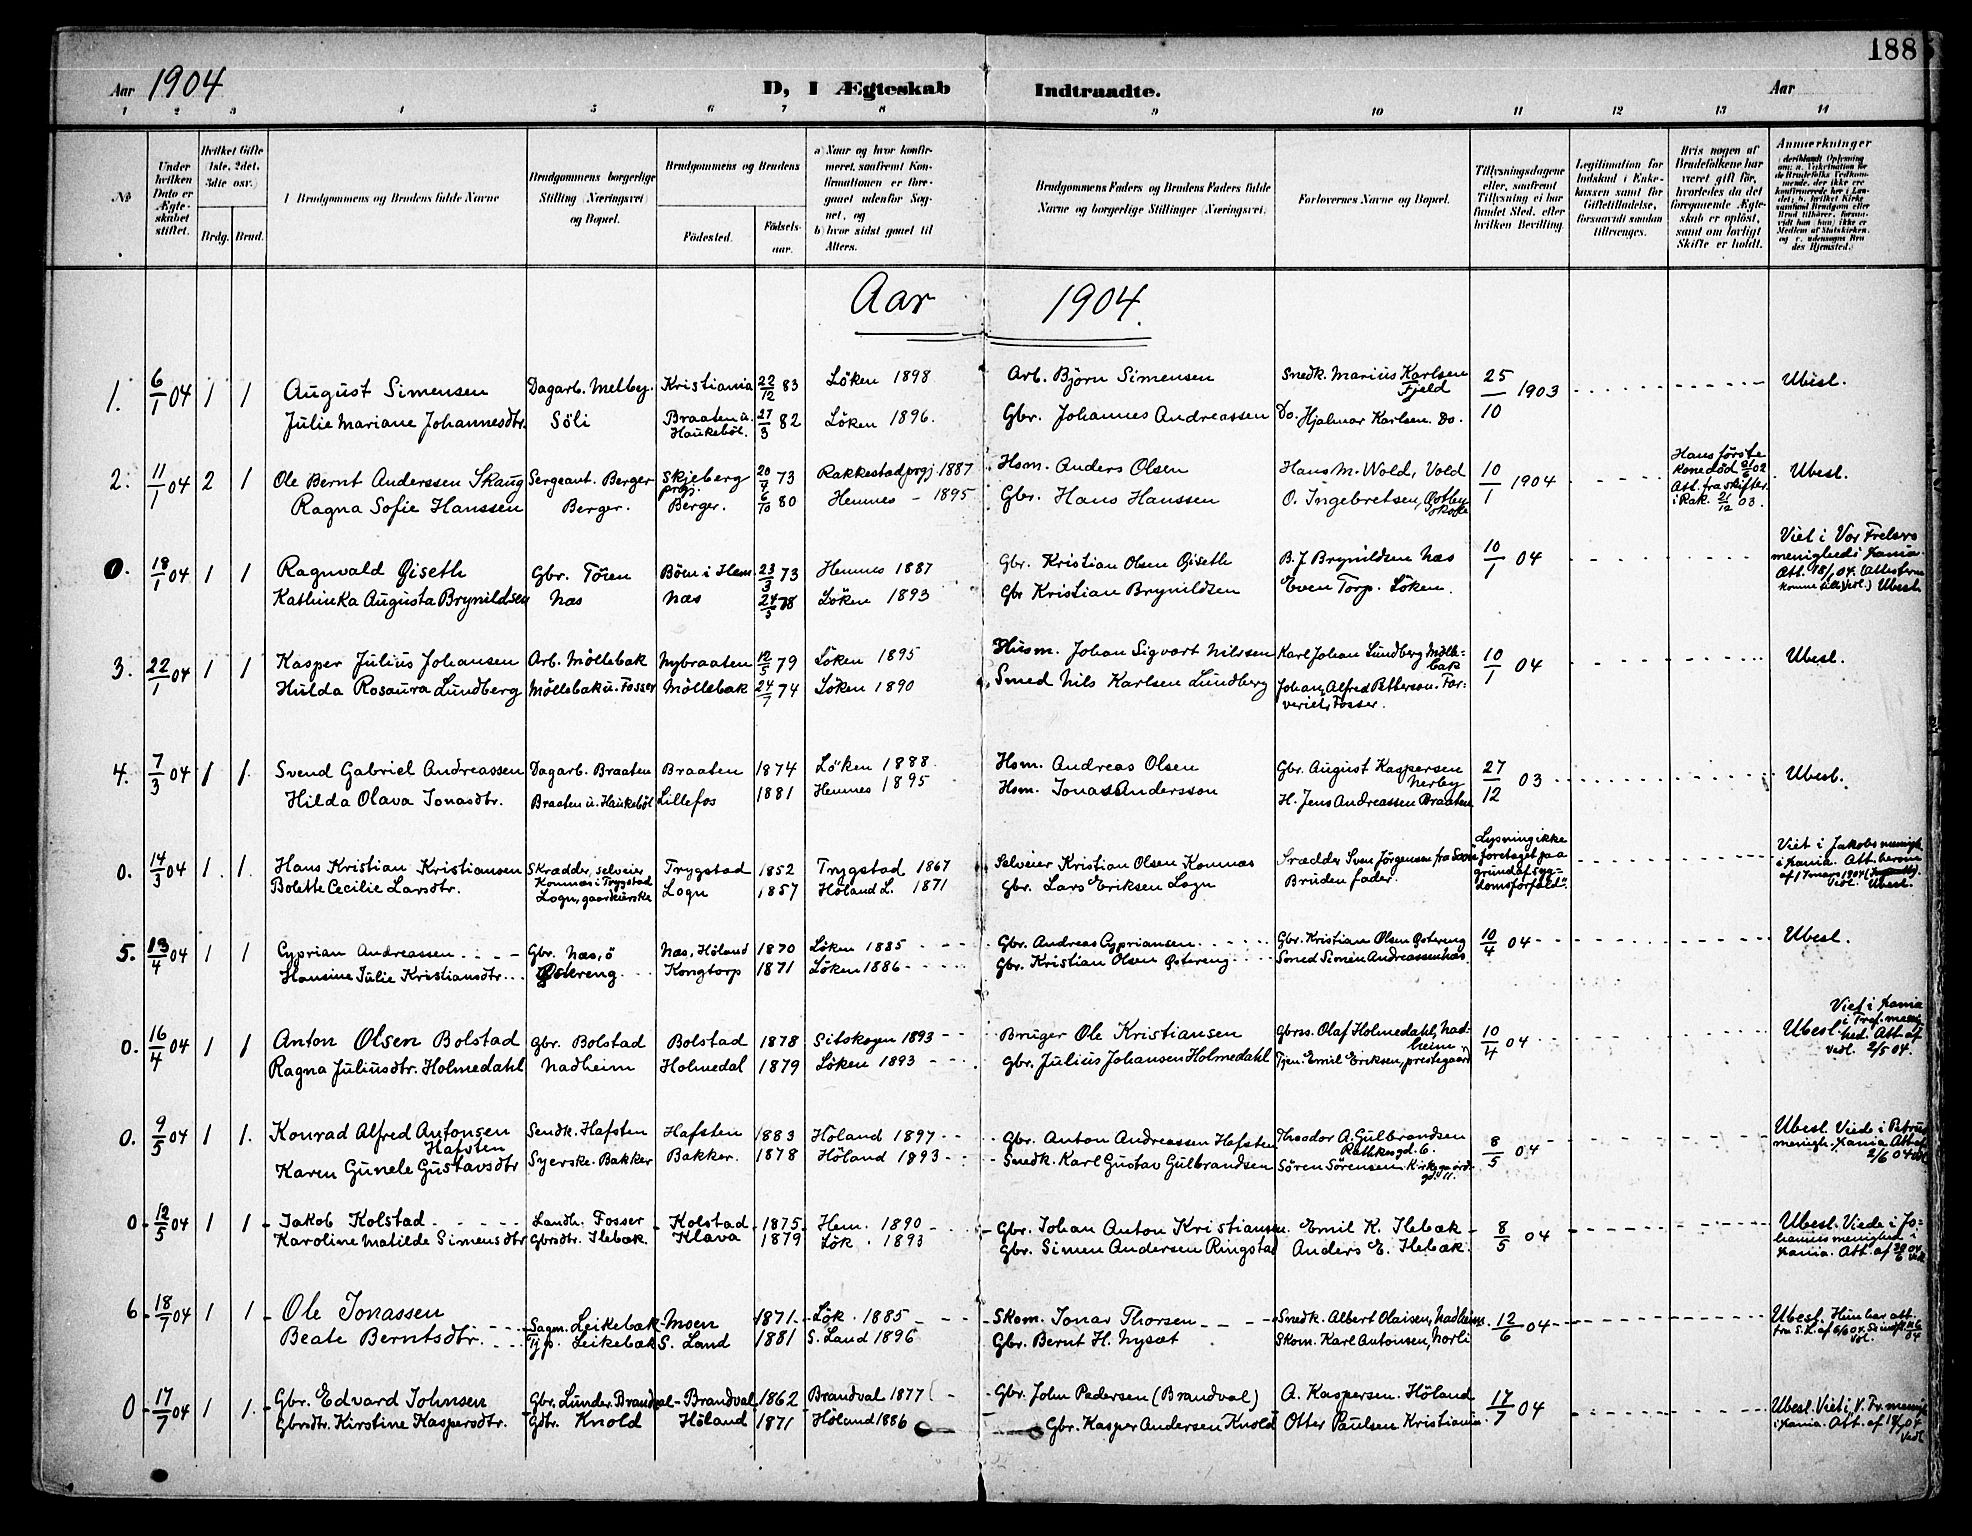 188
Aar 1904 D, I Ægteskab Indtraadte. Aar
1 2 3 4 5 6 7 8 9 10 11 12 13 14
№
Under hvilken Dato er Ægteskabet stiftet.
Hvilket Gifte (1ste, 2det, 3die osv.)
Brdg. Brud.
Brudgommens og Brudens fulde Navne
Brudgommens borgerlige Stilling (Næringsvei) og Bopæl.
Brudgommens og Brudens
Fødested. Fødselsaar.
a) Naar og hvor konfirmeret, saafremt Konfirmationen er foregaaet udenfor Sognet, og
b) hvor sidst gaaet til Alters.
Brudgommens Faders og Brudens Faders fulde Navne og borgerlige Stillinger (Næringsvei).
Forlovernes Navne og Bopæl.
Tillysningsdagene eller, saafremt Tillysning ei har fundet Sted, efter hvilken Bevilling.
Legitimation for Indskud i Enkekassen samt for Giftetilladelse, forsaavidt saadan tiltrænges.
Hvis nogen af Brudefolkene har været gift før, hvorledes da det foregaaende Ægteskab er opløst, samt om lovligt Skifte er holdt.
Anmærkninger
Aar 1904.
1. 6/1 04 1 1 August Simensen Dagarb. Melby. Kristiania 22/12 83 Löken 1898 Arb. Björn Simensen Snedk. Marius Karlsen Fjeld 25/10 1903 Ubesl.
Julie Mariane Johannesdtr. Söli Braaten u. Haukeböl. 27/3 82 Löken 1896. Gbr. Johannes Andreassen Do. Hjalmar Karlsen. Do.
2. 11/1 04 2 1 Ole Bernt Anderssen Skaug Sergeant. Berger Skjeberg prgj. 73 Rakkestad prgj 1887 Hsm. Anders Olsen Hans M. Wold, Vold 10/1 1904 Hans förste Kone död 02 Att. fra skifter. i Rak. 21/12 03. Ubesl.
Ragna Sofie Hanssen Berger. Berger. 6/10 80 Hemnes - 1895 Gbr. Hans Hanssen O. Ingebretsen,
0. 18/1 04 1 1 Ragnvald Giseth Gbr. Töien Böen i Hem. 23/3 73 Hemnes 1887 Gbr. Kristian Olsen Giseth B. J Brynildsen Næs 10/1 04 Viet i Vor Frelsers menighed i Xania. Att. 18/1. 04.
Kathinka Augusta Brynildsen Næs Næs 78 Löken 1893 Gbr Kristian Brynildsen Even Torp. Löken. Ubesl.
3. 22/1 04 1 1 Kasper Julius Johansen Arb. Möllebak Nybraaten 12/5 79 Löken 1895 Husm. Johan Sigvart Nilssen Karl Johan Lundberg Möllebak 10/1 04 Ubesl.
Hulda Rosaura Lundberg Möllebak u. Fosser Möllebak 24/7 74 Löken 1890 Smed Nils Karlsen Lundberg Johan Alfred Petterson. Farveriet, Fosser.
4. 7/3 04 1 1. Svend Gabriel Andreassen Dagarb. Braaten Braaten 1874 Löken 1888. Hsm. Andreas Olsen Gbr. August Kaspersen Nerby 27/12 03 Ubesl.
Hilda Olava Jonasdtr. Braaten u. Haukeböl Lillefos 1881 Hemnes 1895 Hsm. Jonas Andersson H. Jens Andreassen Braaten
0. 14/3 04 1. 1. Hans Kristian Kristiansen Skrædder, selveier Komnæs i Trygstad Trygstad 1852 Trygstad 1867 Selveier Kristian Olsen Komnæs Skrædder Sven Jörgensen fra Lysning ikke foretaget paa grund af sygdomsforfald". Viet i Jakobs menigh. i Xania. Att. herom af 17 mars 1904
Bolette Cecilie Larsdtr. Logn, gaardkierske Logn 1857 Höland L. 1871 Gbr. Lars Eriksen Logn Bruden fader. Vedl. Ubesl.
5. 13/4 04 1 1 Cyprian Andreassen Gbr. Næs, ö Næs, Höland 1870 Löken 1885 Gbr. Andreas Cypriansen Gbr. Kristian Olsen Østereng 10/4 04 Ubesl.
Hansine Julie Kristiansdtr. Østereng Kongtorp 1871 Löken 1886 Gbr. Kristian Olsen Østereng Smed Simen Andreassen Næs.
0. 16/4 04 1 1 Anton Olsen Bolstad Gbr. Bolstad Bolstad 1878 Sitskogen 1893 Bruger Ole Kristiansen Gbrss. Olaf Holmedahl, Nadheim 10/4 04 Ubesl. Viet i Xania i Tref. menighed. Att. af 2/5 04. Vedl.
Ragna Juliusdtr. Holmedahl Nadheim Holmedal 1879 Löken 1893 Gbr. Julius Johansen Holmedahl Tjen. Emil Eriksen, prestegaard
0. 9/5 04 1 1. Konrad Alfred Antonsen Hafsten Snedk. Hafsten Hafsten 1883 Höland 1897 Gbr. Anton Andreassen Hafsten Theodor A. Gulbrandsen Rathkesgd. 6. 8/5 04 Ubesl. Viede i Petrus menigh. Xania. Att. af 2/6 04 Vedl
Karen Gunele Gustavsdtr Syerske. Bakker Bakker. 1878 Höland 1893 Snedk. Karl Gustav Gulbrandsen Sören Sörensen Kirkegaardgd. 11.
0 12/5 04 1 1 Jakob Kolstad Landh. Fosser Kolstad 1875 Hem. 1890 Gbr. Johan Anton Kristiansen. Emil K. Ilebæk 8/5 04 Ubesl. Viede i Johannes menighed i Xania. Att. af
Karoline Matilde Simensdtr Gbrsdtr. Ilebæk. Klava 1879 Lök. 1893 Gbr. Simen Andersen Ringstad Anders E. Ilebæk.
6 18/7 04 1 1 Ole Jonassen Sagm. Leikebæk Moen 1871 Lök. 1885 Skom. Jonas Thorsen Snedk. Albert Olaisen, Nadheim. 12/6 04 Ubesl. Hun har att. fra S. L. af 6/6 04.
Beate Berntsdtr. Tjp. Leikebæk S. Land 1881 S. Land 1896 Gbr. Bernt H. Nysæt Skom. Karl Antonsen, Norli
0 17/7 04 1 1. Gbr. Edvard Johnsen Gbr. Lunder. Brandval Brandval 1862 Brandval 1877 Gbr. John Pedersen (Brandval) A. Kaspersen. Höland 17/7 04 Ubesl. Viet i V. Fr. menigh i Xania. Att. af
Gbrsdtr. Kirstine Kaspersdtr. Gdtr. Knold Höland 1871 Höland 1886 Gbr. Kasper Andersen Knold Otter Paulsen Kristiania. Vedl